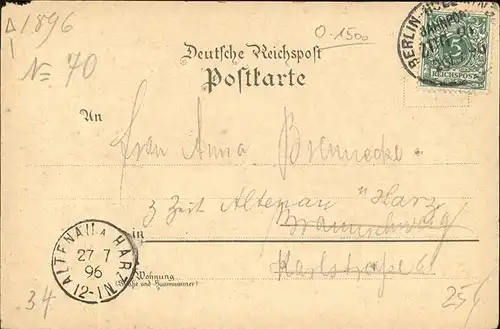 1896
No 70
0-1500
Deutsche Reichspost
Postkarte
BERLIN
BAHNPOST
5
REICHSPOST
An
Frau Anna Brennecke
z Zeit Altenau "Harz
in Braunschweig
Karlstraße 6
Wohnung
(Straße und Hausnummer)
ALTENAU a HARZ
27 7
96
12-1N
34
25